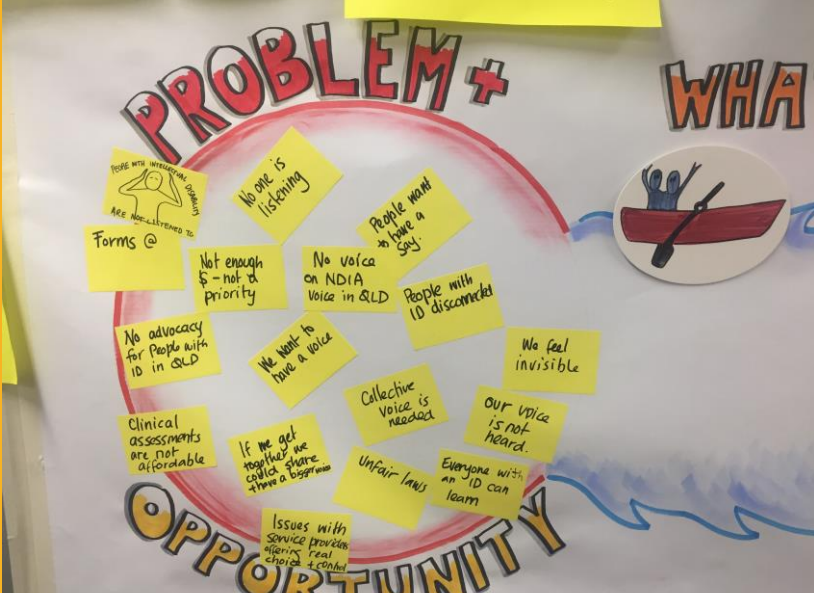 PROBLEM +
WHA
PEOPLE WITH INTELLECTUAL DISABILITY
ARE NOT LISTENED TO
No one is
listening
People want
to have a
say.
Forms @
Not enough
$ - not a
priority
No voice
on NDIA
voice in QLD
People with
ID disconnected
No advocacy
for People with
ID in QLD
We want to
have a voice
We feel
invisible
Collective
voice is
needed
our voice
is not
heard.
Clinical
assessments
are not
affordable
If we get
together we
could share
+ have a bigger voice
Unfair laws
Everyone with
an ID can
learn
Issues with
service providers
offering real
choice + control
OPPORTUNITY